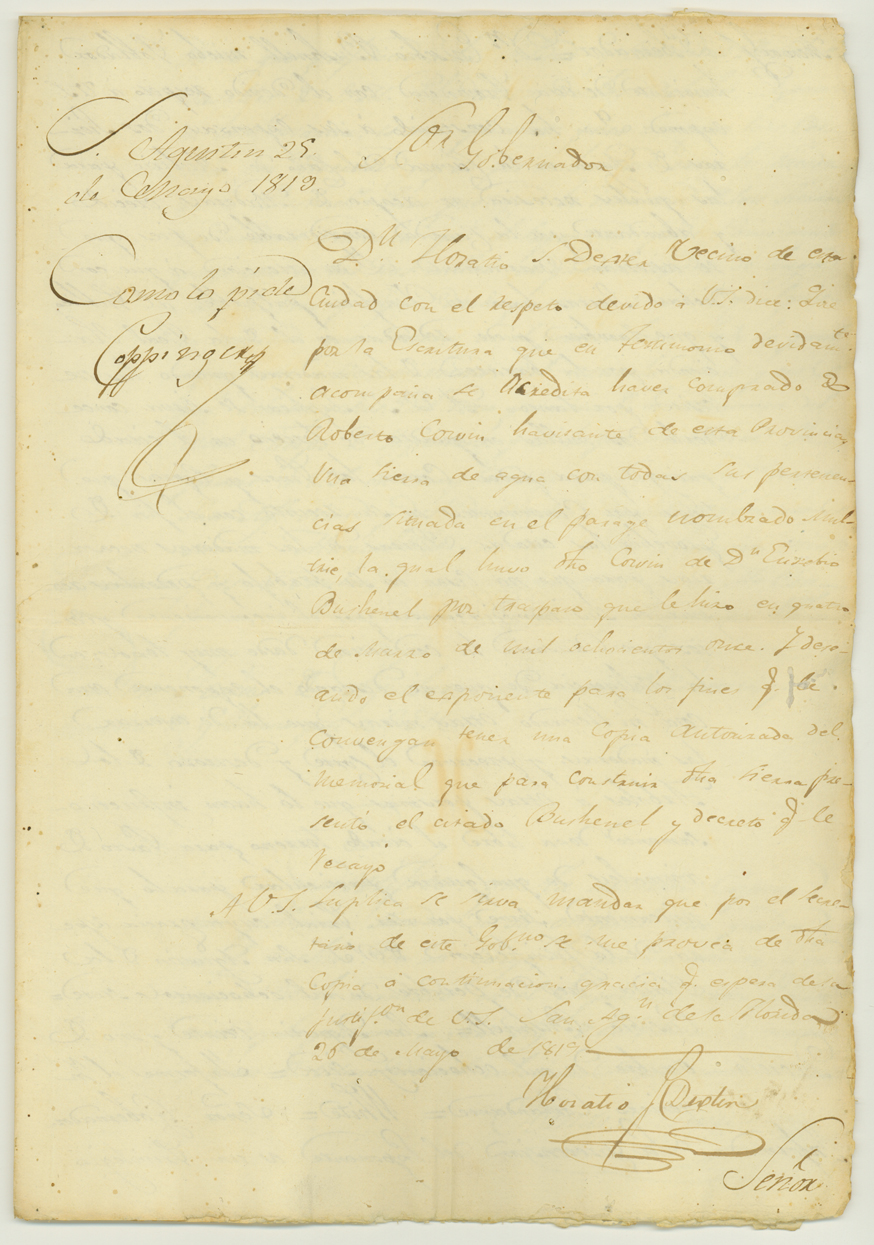 S. Agustin 25
de Mayo 1819
Como lo pide
Coppinger
Sor Gobernador
Dn. Horatio S. Dexter Vecino de esta
Ciudad con el respeto devido á V.S. dice: Que
por la Escritura que en testimonio devidamte.
acompaña se acredita haver comprado á
Roberto Cowin havitante de esta Provincia
Una sierra de agua con todas sus pertenen-
cias situada en el parage nombrado
la qual huvo dho Cowin de Dn Eusebio
Bushenel por traspaso que le hizo en quatro
de Marzo de mil ochocientos once. Y dese-
ando el exponente para los fines q. le
convengan tener una Copia autorizada del
Memorial que para construir dha sierra pre-
sentó el citado Bushenel y decreto q. le
recayo
A V.S. Suplica se sirva mandar que por el Secre-
tario de este Gobno. se me provea de dha
Copia á continuacion. gracia q. espera de la
justifon. de V.S. San Agn. de la Florida
26 de Mayo de 1819.
Horatio S Dexter
Señor